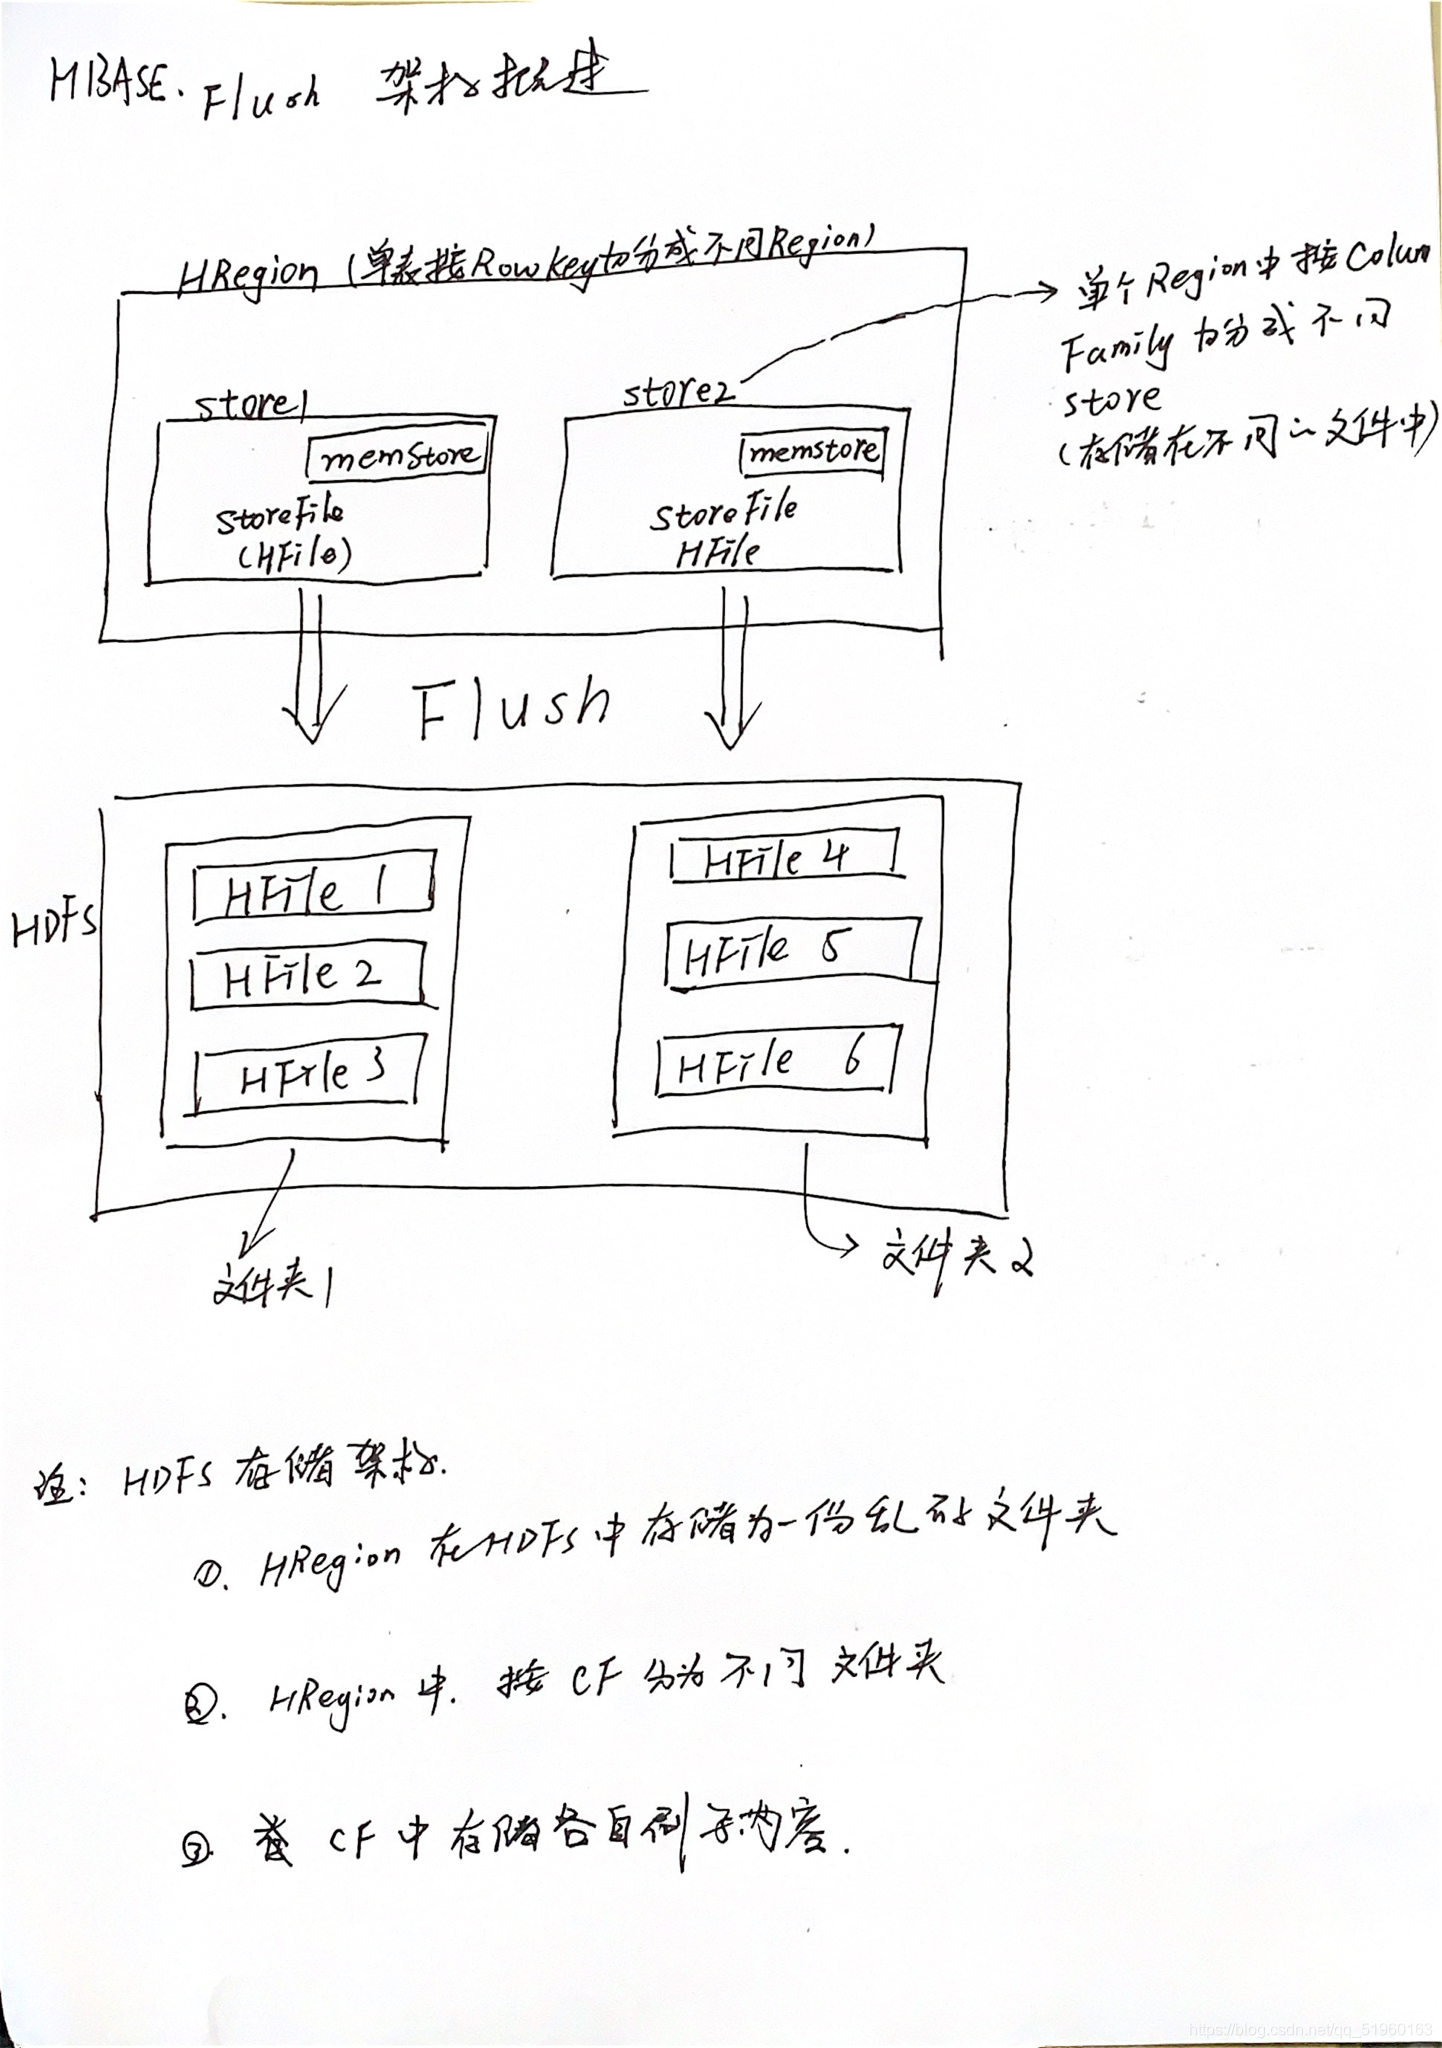 HBASE. Flush 架构概述
HRegion (单表按RowKey切分成不同Region)
单个Region中按Colum
Family切分成不同
store
(存储在不同的文件中)
store1
store2
memStore
memstore
StoreFile
(HFile)
StoreFile
HFile
Flush
HDFS
HFile 1
HFile 2
HFile 3
HFile 4
HFile 5
HFile 6
文件夹1
文件夹2
注: HDFS 存储架构.
①. HRegion 在HDFS中存储为一份乱码文件夹
②. HRegion中. 按 CF 分为不同文件夹
③ CF 中存储各自列内容.
https://blog.csdn.net/qq_51960163